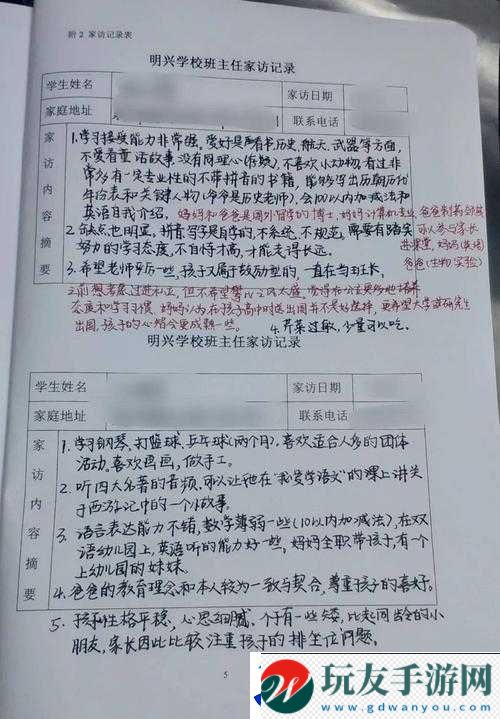 附 2 家访记录表
明兴学校班主任家访记录
学生姓名
家访日期
家庭地址
联系电话
家访内容摘要
1.学习接受能力非常强,爱好是看书历史、航天、武器等方面,
不爱看童话故事,没有同理心(怀疑),不喜欢小动物,看过非
常多有一定专业性的不带拼音的书籍,能够写出历朝历代
年份表和关键人物(爷爷是历史老师),会100以内加减法和
英语自我介绍。妈妈和爸爸是国外留学的博士,妈妈计算机专业,爸爸制药
可以参与家长
2.缺点也明显,拼音写字是自学的,不系统、不规范,需要有踏实
进课堂,妈妈(英语)
努力的学习态度,不自恃才高,才能走得长远。
爸爸(生物实验)
3.希望老师多历一些,孩子又属于鼓励型的,一直在当班长,
之前想考虑过进私立,但不希望攀比之风太盛,觉得在公立更好地培养
态度和学习习惯,妈妈认为在孩子高中时送出国并不是好选择,更希望大学或研究生
出国,孩子的心智会更成熟一些。
4.芹菜过敏,少量可以吃。
明兴学校班主任家访记录
学生姓名
家访日期
家庭地址
联系电话
家访内容摘要
1.学习钢琴、打篮球、乒乓球(两个月)。喜欢适合人多的团体
活动。喜欢画画,做手工。
2.听四大名著的音频,可以让他在“我爱学语文”的课上讲关
于西游记中的一个小故事。
3.语言表达能力不错,数学薄弱一些(10以内加减法),在双
语幼儿园上,英语听的能力好一些,妈妈全职带孩子,有一个
上幼儿园的妹妹。
4.爸爸的教育理念和本人较为一致与契合,尊重孩子的喜好。
5.孩子性格平稳,心思细腻,个子有一些矮,比起同龄的小
朋友,家长因此比较注重孩子的排坐位问题。
5
玩友手游网
www.gdwanyou.com